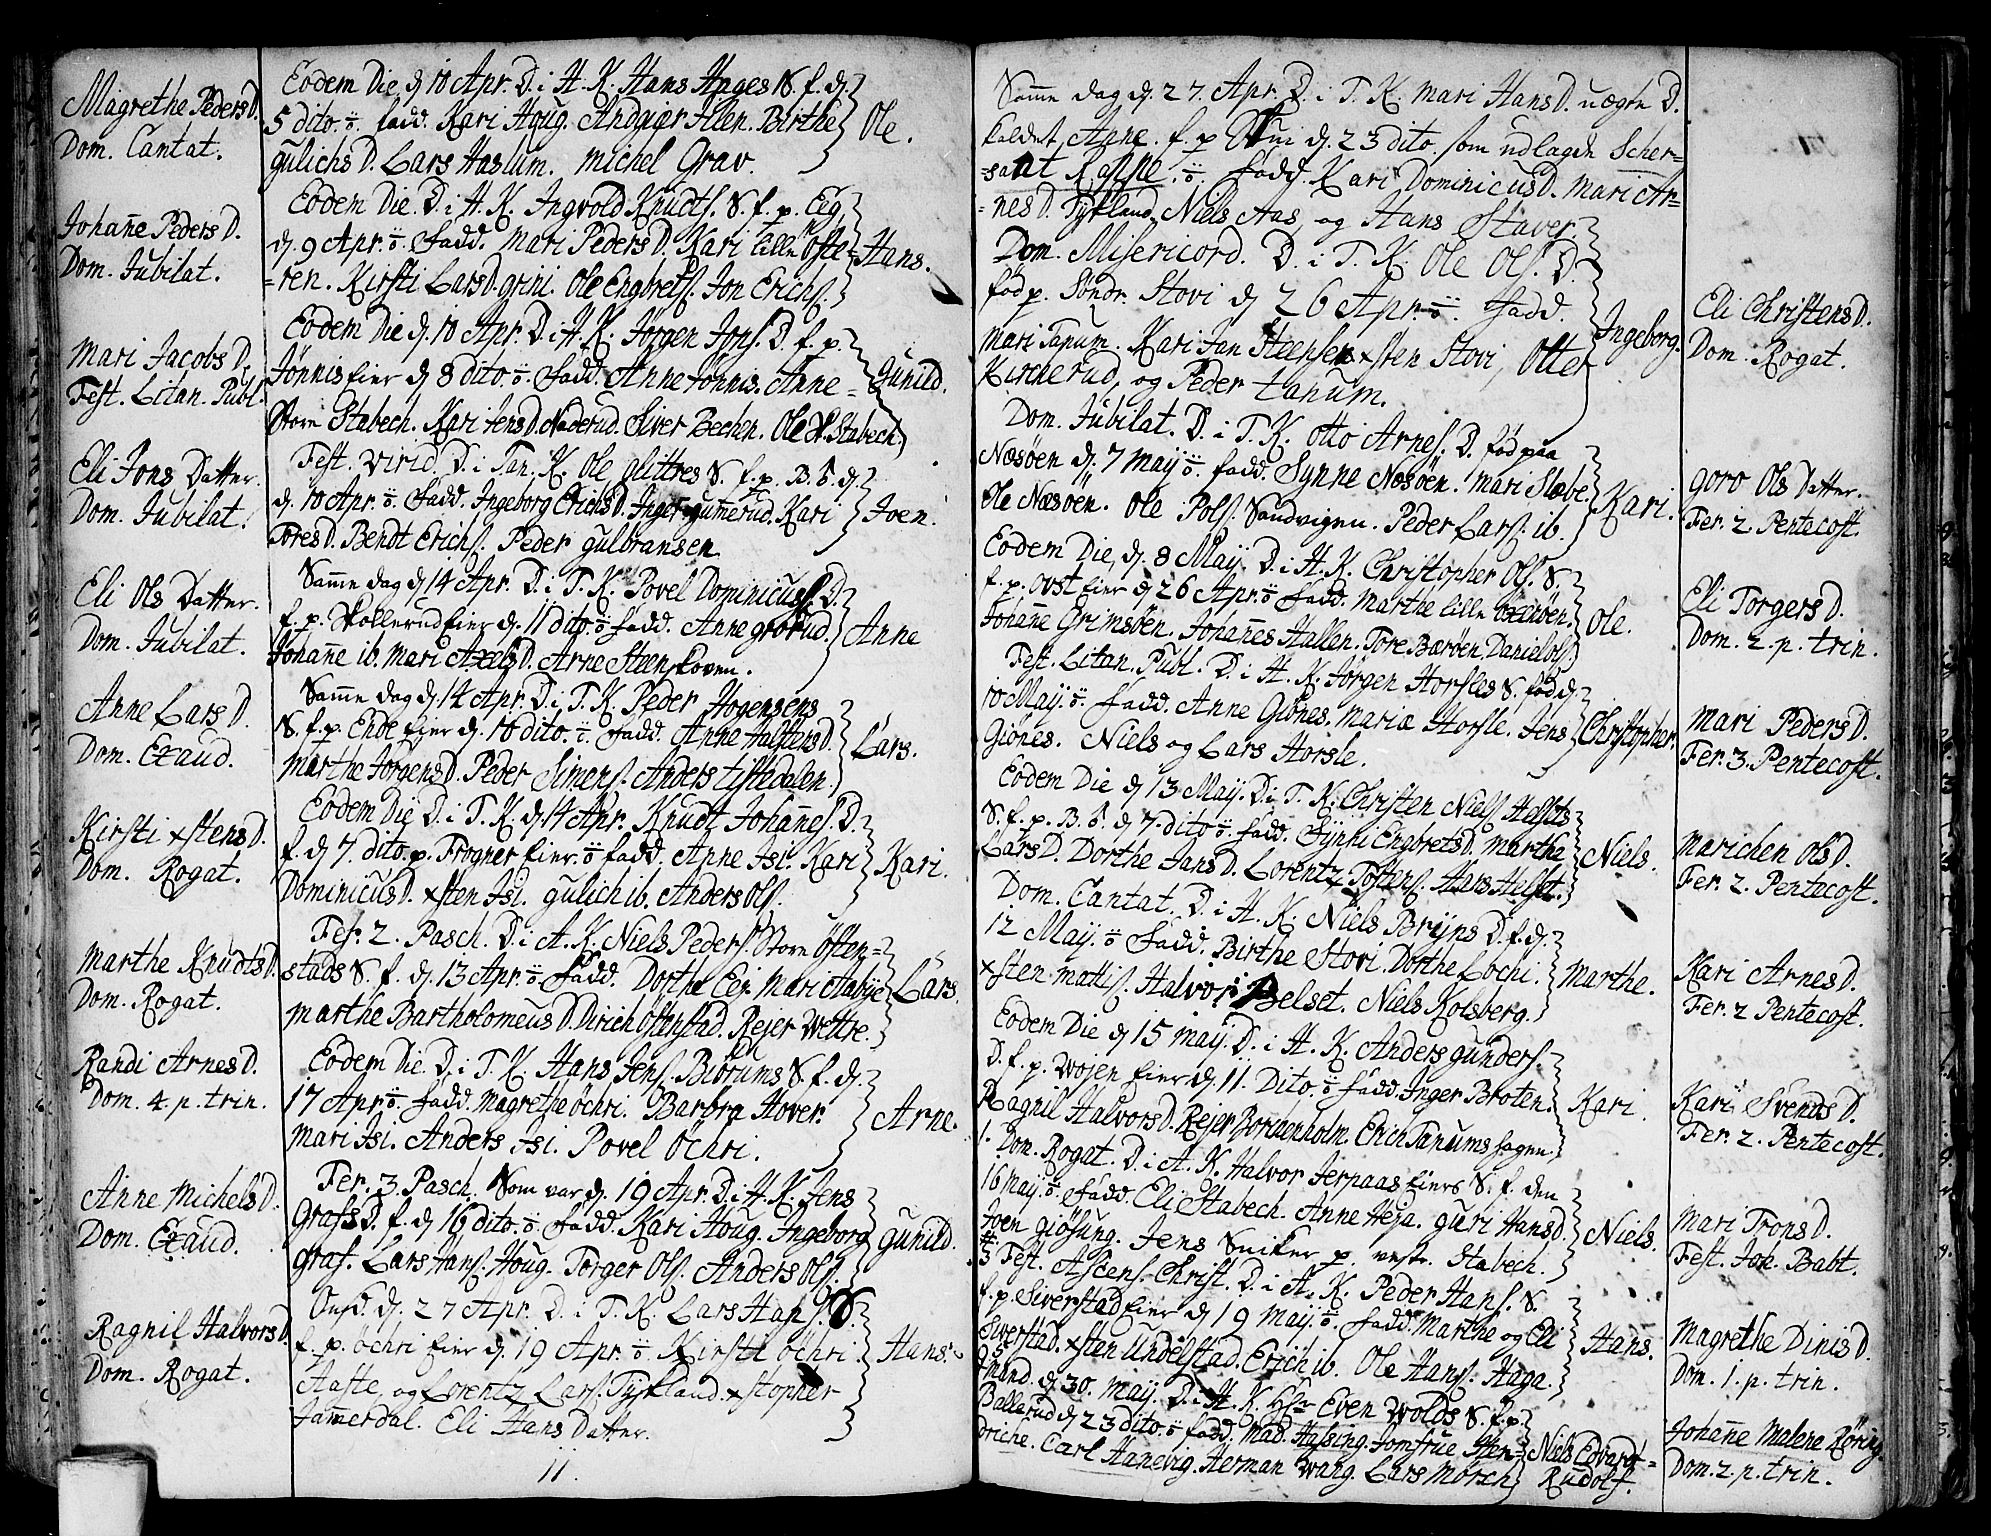 Magrethe Peders D.
Dom. Cantat.
Johañe Peders D.
Dom. Jubilat.
Mari Jacobs D.
Fest. Litan. Publ.
Eli Jons Datter.
Dom. Jubilat.
Eli Ols Datter.
Dom. Jubilat.
Anne Lars D.
Dom. Exaud.
Kirsti xstens D.
Dom. Rogat.
Marthe Knudts D.
Dom. Rogat.
Randi Arnes D.
Dom. 4. p. trin.
Anne Michels D.
Dom. Exaud.
Ragnil Halvors D.
Dom. Rogat.
Eodem Die, d. 10 Apr. D. i H. K. Hans Hages S. f. d.
5 dito. ö. fadd. Kari Houg. Andgier Ilen. Birthe
Gulichs D. Lars Haslum. Michel Grav.
Ole.
Eodem Die. D. i H. K. Ingvold Knudts. S. f. p. Eeg,
d. 9 Apr. ö. Fadd. Mari Peders D. Kari lille Øste-
-ren. Kirsti Lars D. Grini. Ole Engbrets. Jon Erichs.
Hans.
Eodem Die d. 10 Apr. D. i H. K. Jørgen Jons. D. f. p.
Jønnis Eier d. 8 dito. ö. Fadd. Anne Jønnis. Anne
Store Stabech. Kari Jens D. Naderud. Siver Bechen. Ole W. Stabech.
Gunild.
Fest. Virid. D. i Tan. K. Ole Glittres S. f. p. B. S. d.
d. 10 Apr. ö. Fadd. Ingeborg Erichs D. Inger Gumerud. Kari
Tores D. Bendt Erichs. Peder Gulbransen.
Joen.
Samme dag d. 14 Apr. D. i T. K. Povel Dominicus. D.
f. p. Skollerud Eier d. 11 dito. ö. Fadd. Anne Grorud.
Johañe ib. Mari Axels D. Arne Steenskoven.
Anne
Samme dag d. 14 Apr. D. i T. K. Peder Hogensens
S. f. p. Ende Eier d. 10 dito. ö. Fadd. Anne Halstens D.
Marthe Jørgens D. Peder Simens. Anders Tistedalen.
Lars.
Eodem Die D. i T. K. d. 14 Apr. Knudt Johañes. D.
f. d. 7. dito. p. Frogner Eier. ö. Fadd. Anne Isi. Kari
Dominicus D. xsten Isi. Gulich ib. Anders Ols.
Kari.
Fer. 2. Pasch. D. i A. K. Niels Peders. Store Østen-
stads S. f. d. 13 Apr. ö. Fadd. Dorthe Eej. Mari Aabye
Marthe Bartholomeus D. Dirich Østenstad. Rejer Wettre.
Lars.
Eodem Die. D. i T. K. Hans Jens. Biørums S. f. d.
17 Apr. ö. Fadd. Magrethe Øchri. Barbra Hover.
Mari Isi. Anders Isi. Povel Øchri.
Arne.
Fer. 3. Pasch. Som var d. 19 Apr. D. i H. K. Jens
Grafs D. f. d. 16 dito. ö. Fadd. Kari Houg. Ingeborg
Graf. Lars Hans. Houg. Torger Ols. Anders Ols.
Gunild.
Onsd. d. 27 Apr. D. i T. K. Lars Hans. S.
f. p. Øchri Eier d. 19 Apr. ö. Kirsti Øchri.
Aaste, og Lorentz Lars. Tyskland. xstopher
Jamerdal. Eli Hans Datter.
Hans.
11.
Samme dag d. 27. Apr. D. i T. K. Mari Hans D. uægte D.
kaldet Anne. f. p. Skui d. 23 dito. som udlagde Scher-
-sant Rasse. ö. Fadd. Kari Dominicus D. Mari Ar-
-nes D. Tyskland. Niels Aas, og Hans Staver.
Dom. Misericord. D. i T. K. Ole Ols. D.
fød p. Søndr. Stovi d. 26 Apr. ö. Fadd.
Mari Tanum. Kari Jan Steensen xsten Stovi, Otter
Kircherud, og Peder Tanum.
Ingeborg.
Dom. Jubilat. D. i T. K. Otto Arnes. D. fød paa
Næsøen d. 7 Maÿ. ö. Fadd. Synne Næsøen. Mari Slæbe.
Ole Næsøen. Ole Pols. Sandvigen. Peder Lars. ib.
Kari.
Eodem Die, d. 8 Maÿ. D. i H. K. Christopher Ols. S.
f. p. Ovst Eier d. 26 Apr. ö. Fadd. Marthe lille Oxenøen.
Johañe Grimsøen. Johañes Hallen. Tore Bærøen. Daniel Ols.
Ole.
Fest. Litan. Publ. D. i H. K. Jørgen Horsles S. fød d.
10 Maÿ. ö. Fadd. Anne Giønes. Mariæ Horsle. Jens
Giønes. Niels og Lars Horsle.
Christopher.
Eodem Die d. 13 Maÿ. D. i T. K. Christen Niels. Helsets
S. f. p. B. S. d. 7. dito. ö. Fadd. Synni Engbrets D. Marthe
Lars D. Dorthe Jans D. Lorentz Tostens. Hans Helset.
Niels.
Dom. Cantat. D. i H. K. Niels Bryns D. f. d.
12 Maÿ. ö. Fadd. Birthe Stovi. Dorthe Lochi.
xsten Mattis. Halvor Belset. Niels Kolsberg.
Marthe.
Eodem Die d. 15 Maÿ. D. i H. K. Anders Gunders.
D. f. p. Wøjen Eier d. 11. Dito. ö. Fadd. Inger Broten.
Ragnil Halvors D. Rejer Bordenholm. Erich Tanumshagen.
Kari.
1. Dom. Rogat. D. i A. K. Halvor Jerpaas Eiers S. f. den
16 Maÿ. ö. Fadd. Eli Stabech. Anne Heja. Guri Hans D.
Joen Giøsung. Jens Sniker p. vestr. Stabech.
Niels.
Fest. Ascens. Christ. D. i A. K. Peder Hans. S.
f. p. Siverstad Eier d. 19 Maÿ. ö. Fadd. Marthe og Eli
Siverstad. xsten Undelstad. Erich ib. Ole Hans. Haga.
Hans.
Mand. d. 30. Maÿ. D. i H. K. Hr Even Wolds S. f. p.
Ballerud d. 23 dito. ö. Fadd. Mad. Hassing. Jomfrue Hen-
driche. Carl Hanevig. Herman Wang. Lars Mørch
Niels Edvardt
Rudolf.
Eli Christens D.
Dom. Rogat.
Goro Ols Datter.
Fer. 2. Pentecost.
Eli Torgers D.
Dom. 2. p. trin.
Mari Peders D.
Fer. 3. Pentecost.
Marichen Ols D.
Fer. 2. Pentecost.
Kari Arnes D.
Fer. 2 Pentecost.
Kari Svends D.
Fer. 2. Pentecost.
Mari Trons D.
Fest. Joh. Babt.
Magrethe Dinis D.
Dom. 1. p. trin.
Johañe Malene Røring
Dom. 2. p. trin.